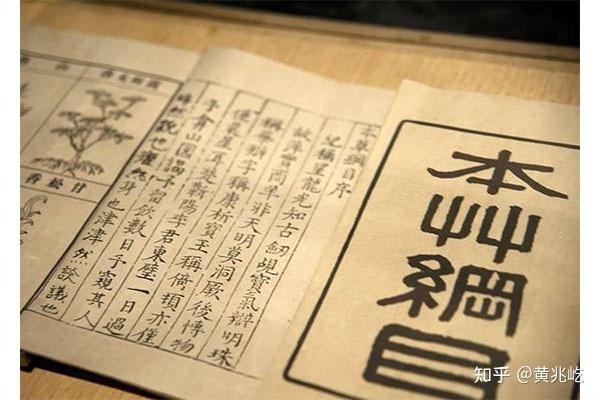 本艸綱目
本草綱目序
紀稱望龍光知古劒覘寶氣辯明珠
故萍實商羊非天明莫洞厥後博物
稱華辯字稱康析寶玉稱倚頓亦僅
僅晨星耳楚蘄陽李君東璧一日過
予弇山園謁予留飲數日予窺其人
睟然貌也癯然身也津津然談議也
甘松香
知乎 @黄兆屹